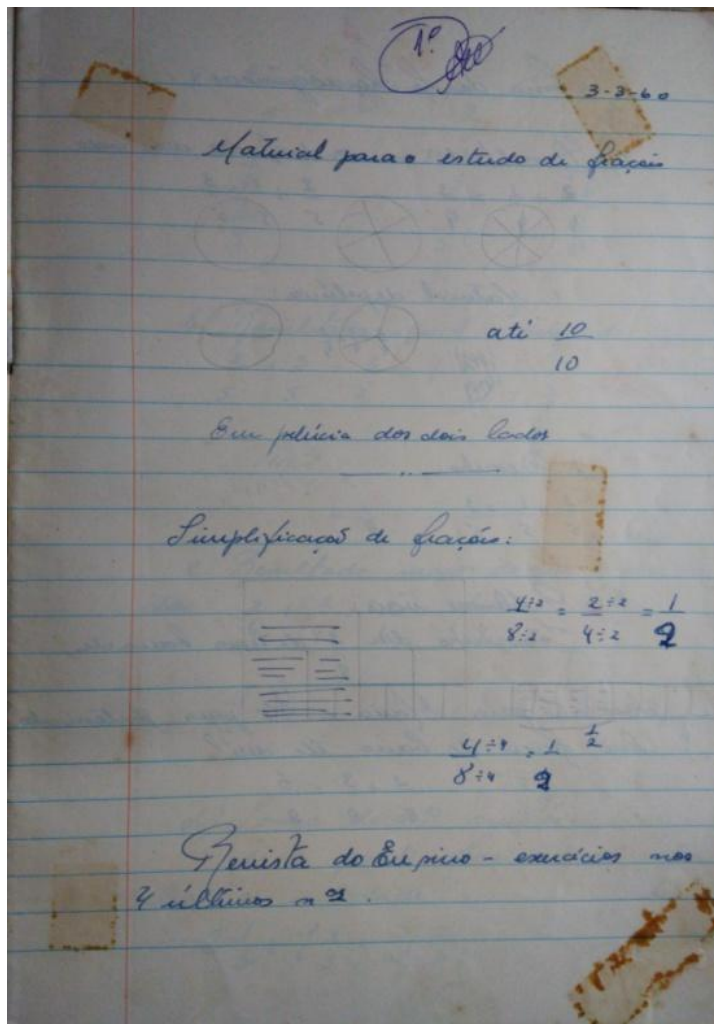 1º
3-3-60
Material para o estudo de frações
até 10/10
Em pelúcia dos dois lados
Simplificação de frações:
4÷2/8÷2 = 2÷2/4÷2 = 1/2
4÷4/8÷4 = 1/2 1/2
Revista do Ensino - exercícios nos
4 últimos nos.